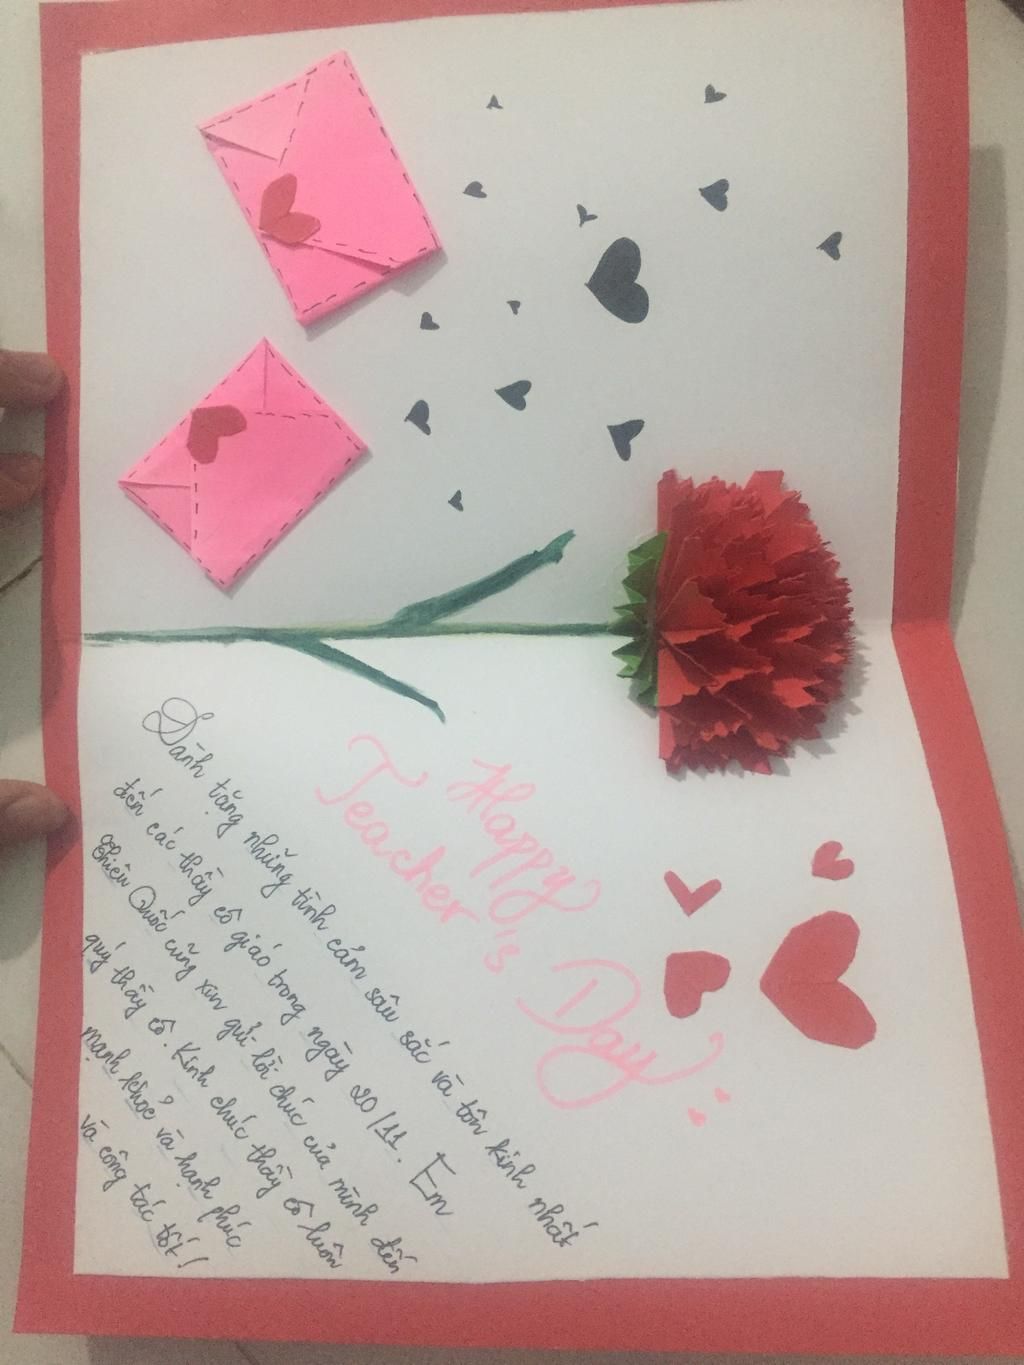 Happy
Teacher's
Day
Dành tặng những tình cảm sâu sắc và tôn kính nhất
đến các thầy cô giáo trong ngày 20/11. Em
Thiên Quốc cũng xin gửi lời chúc của mình đến
quý thầy cô. Kính chúc thầy cô luôn
mạnh khoẻ và hạnh phúc
và công tác tốt!